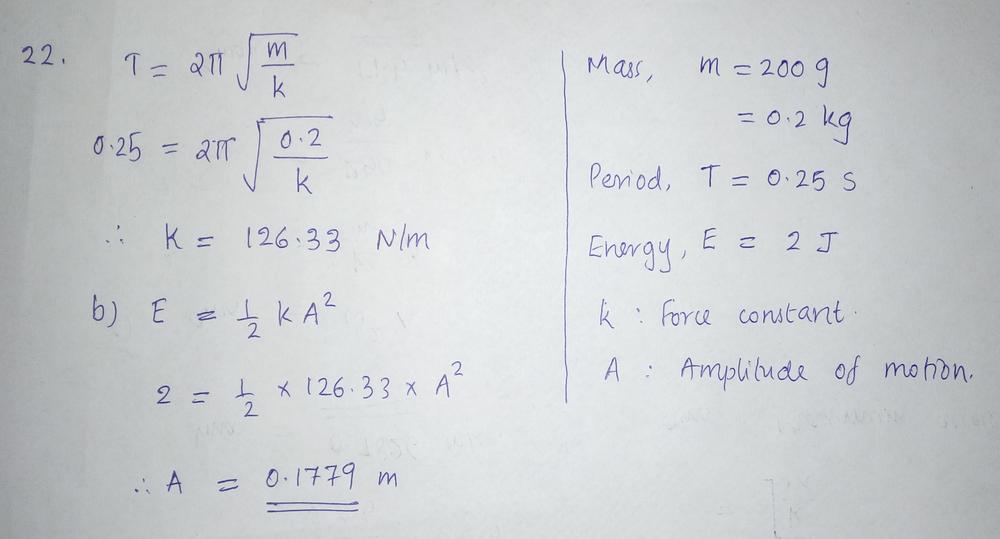 22. T = 2π √(m/k)
0.25 = 2π √(0.2/k)
∴ K = 126.33 N/m
b) E = 1/2 K A²
2 = 1/2 × 126.33 × A²
∴ A = 0.1779 m
Mass, m = 200 g
= 0.2 kg
Period, T = 0.25 s
Energy, E = 2 J
k : Force constant.
A : Amplitude of motion.